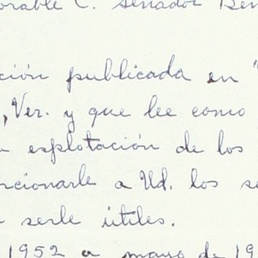 orable C. Senador Ben
ción publicada en "
, Ver. y que lee como
a explotación de los
rcionarle a Ud. los se
serle útiles.
1952 a mayo de 19